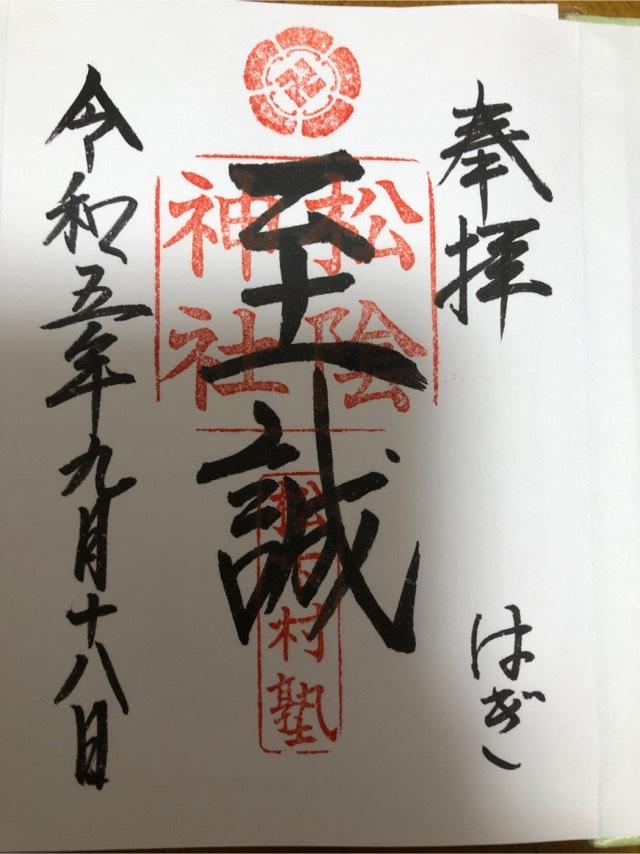 奉拝
はぎ
至誠
松陰
神社
松下村塾
令和五年九月十八日